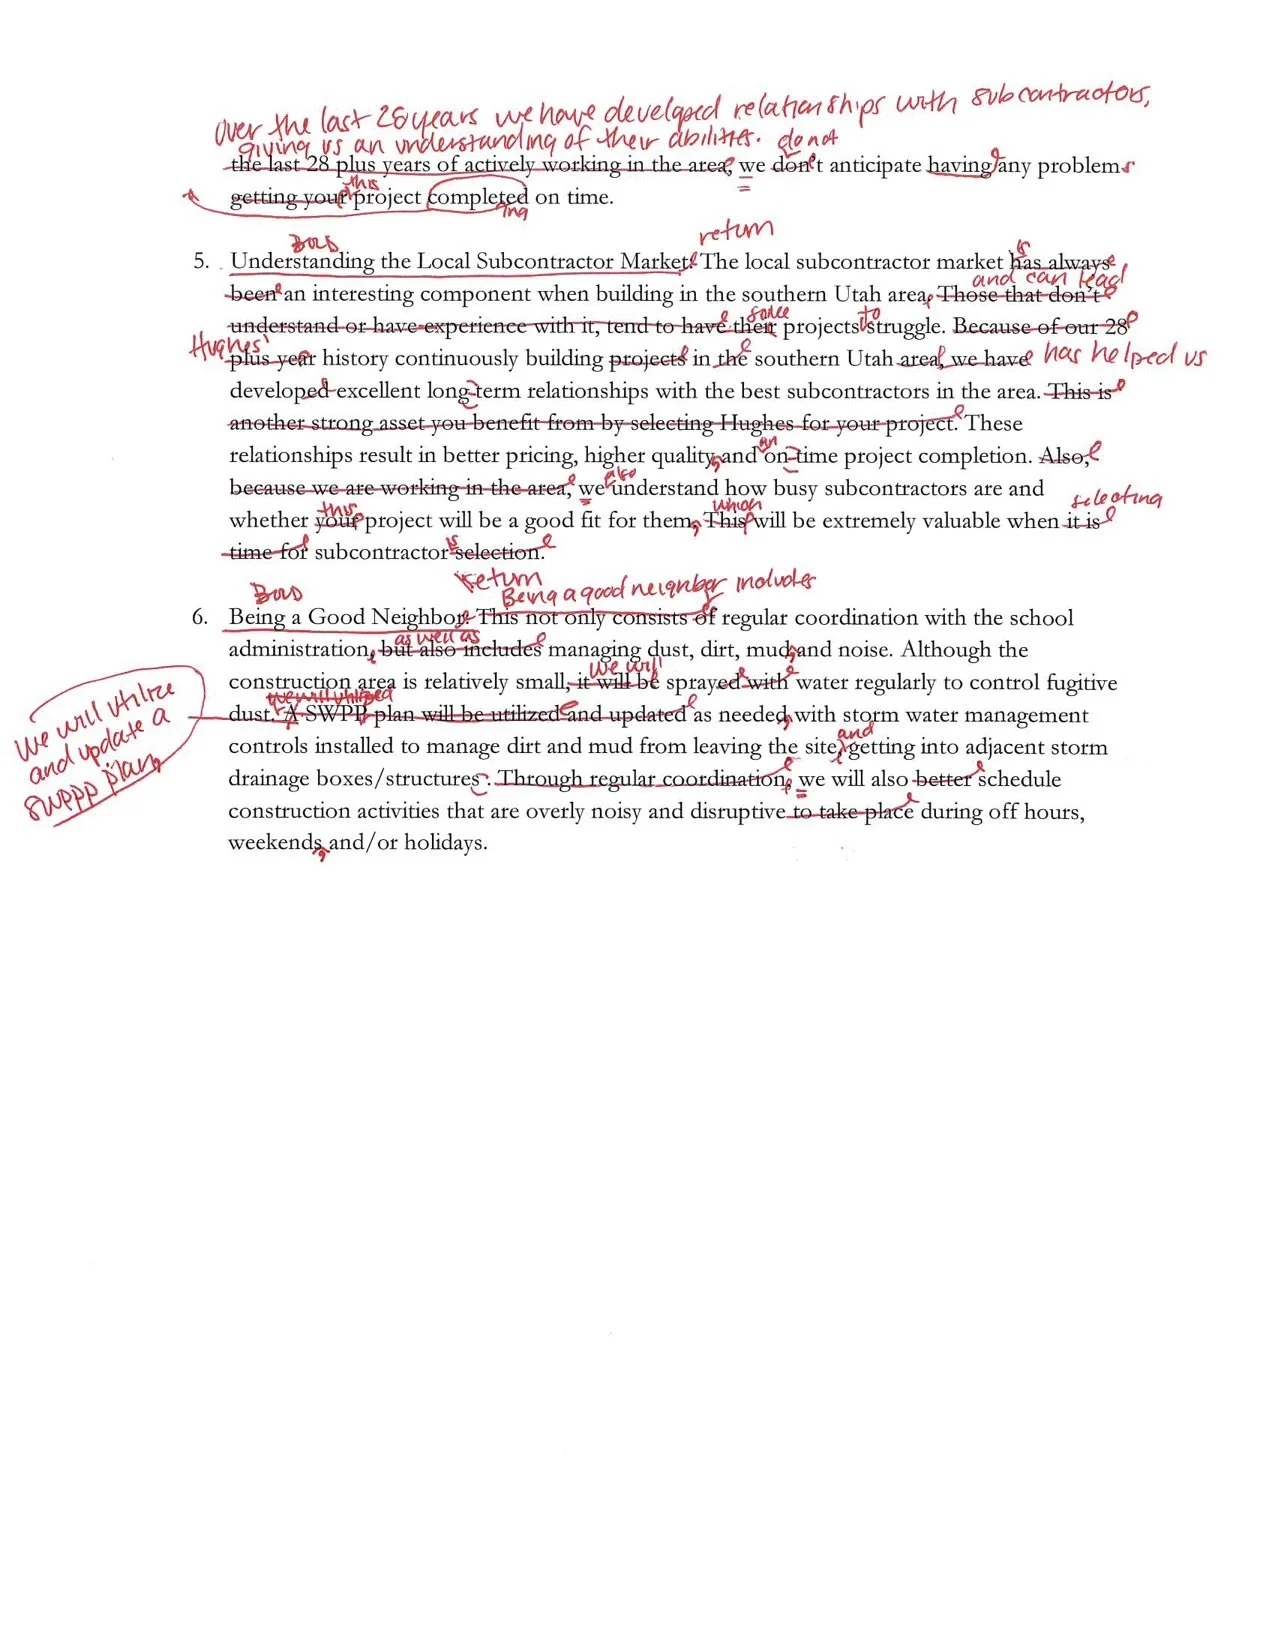 over the last 28 years we have developed relationships with subcontractors,
giving us an understanding of their abilities. do not
the last 28 plus years of actively working in the area, we don't anticipate having any problems
this
getting your project completed on time.
ing
Bold
return
5. Understanding the Local Subcontractor Market: The local subcontractor market has always
is
and can lead
been an interesting component when building in the southern Utah area. Those that don't
some
to
understand or have experience with it, tend to have their projects struggle. Because of our 28
Hughes'
plus year history continuously building projects in the southern Utah area, we have has helped us
developed excellent long-term relationships with the best subcontractors in the area. This is
another strong asset you benefit from by selecting Hughes for your project. These
an
relationships result in better pricing, higher quality, and on-time project completion. Also,
also
because we are working in the area, we understand how busy subcontractors are and
this
which
selecting
whether your project will be a good fit for them, This will be extremely valuable when it is
time for subcontractor selection.
s
Bold
return
Being a good neighbor includes
6. Being a Good Neighbor: This not only consists of regular coordination with the school
as well as
administration, but also includes managing dust, dirt, mud, and noise. Although the
we will
construction area is relatively small, it will be sprayed with water regularly to control fugitive
we will utilized
dust. A SWPP plan will be utilized and updated as needed, with storm water management
we will utilize
and update a
SWPPP plan
and
controls installed to manage dirt and mud from leaving the site, getting into adjacent storm
drainage boxes/structures. Through regular coordination, we will also better schedule
construction activities that are overly noisy and disruptive to take place during off hours,
weekends, and/or holidays.